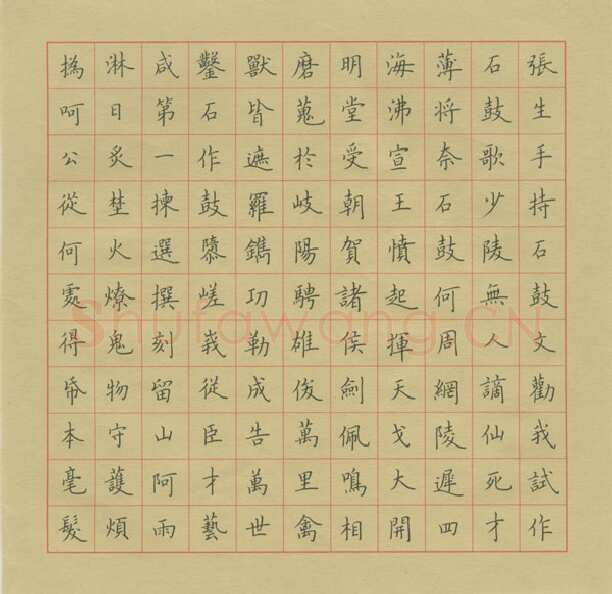 張生手持石鼓文勸我試作
石鼓歌少陵無人謫仙死才
薄将奈石鼓何周綱陵遲四
海沸宣王憤起揮天戈大開
明堂受朝賀諸侯劍佩鳴相
磨蒐於岐陽騁雄俊萬里禽
獸皆遮羅鐫功勒成告萬世
鑿石作鼓隳嵯峩從臣才藝
咸第一揀選撰刻留山阿雨
淋日炙埜火燎鬼物守護煩
撝呵公從何處得帋本毫髮
Shufawang.CN